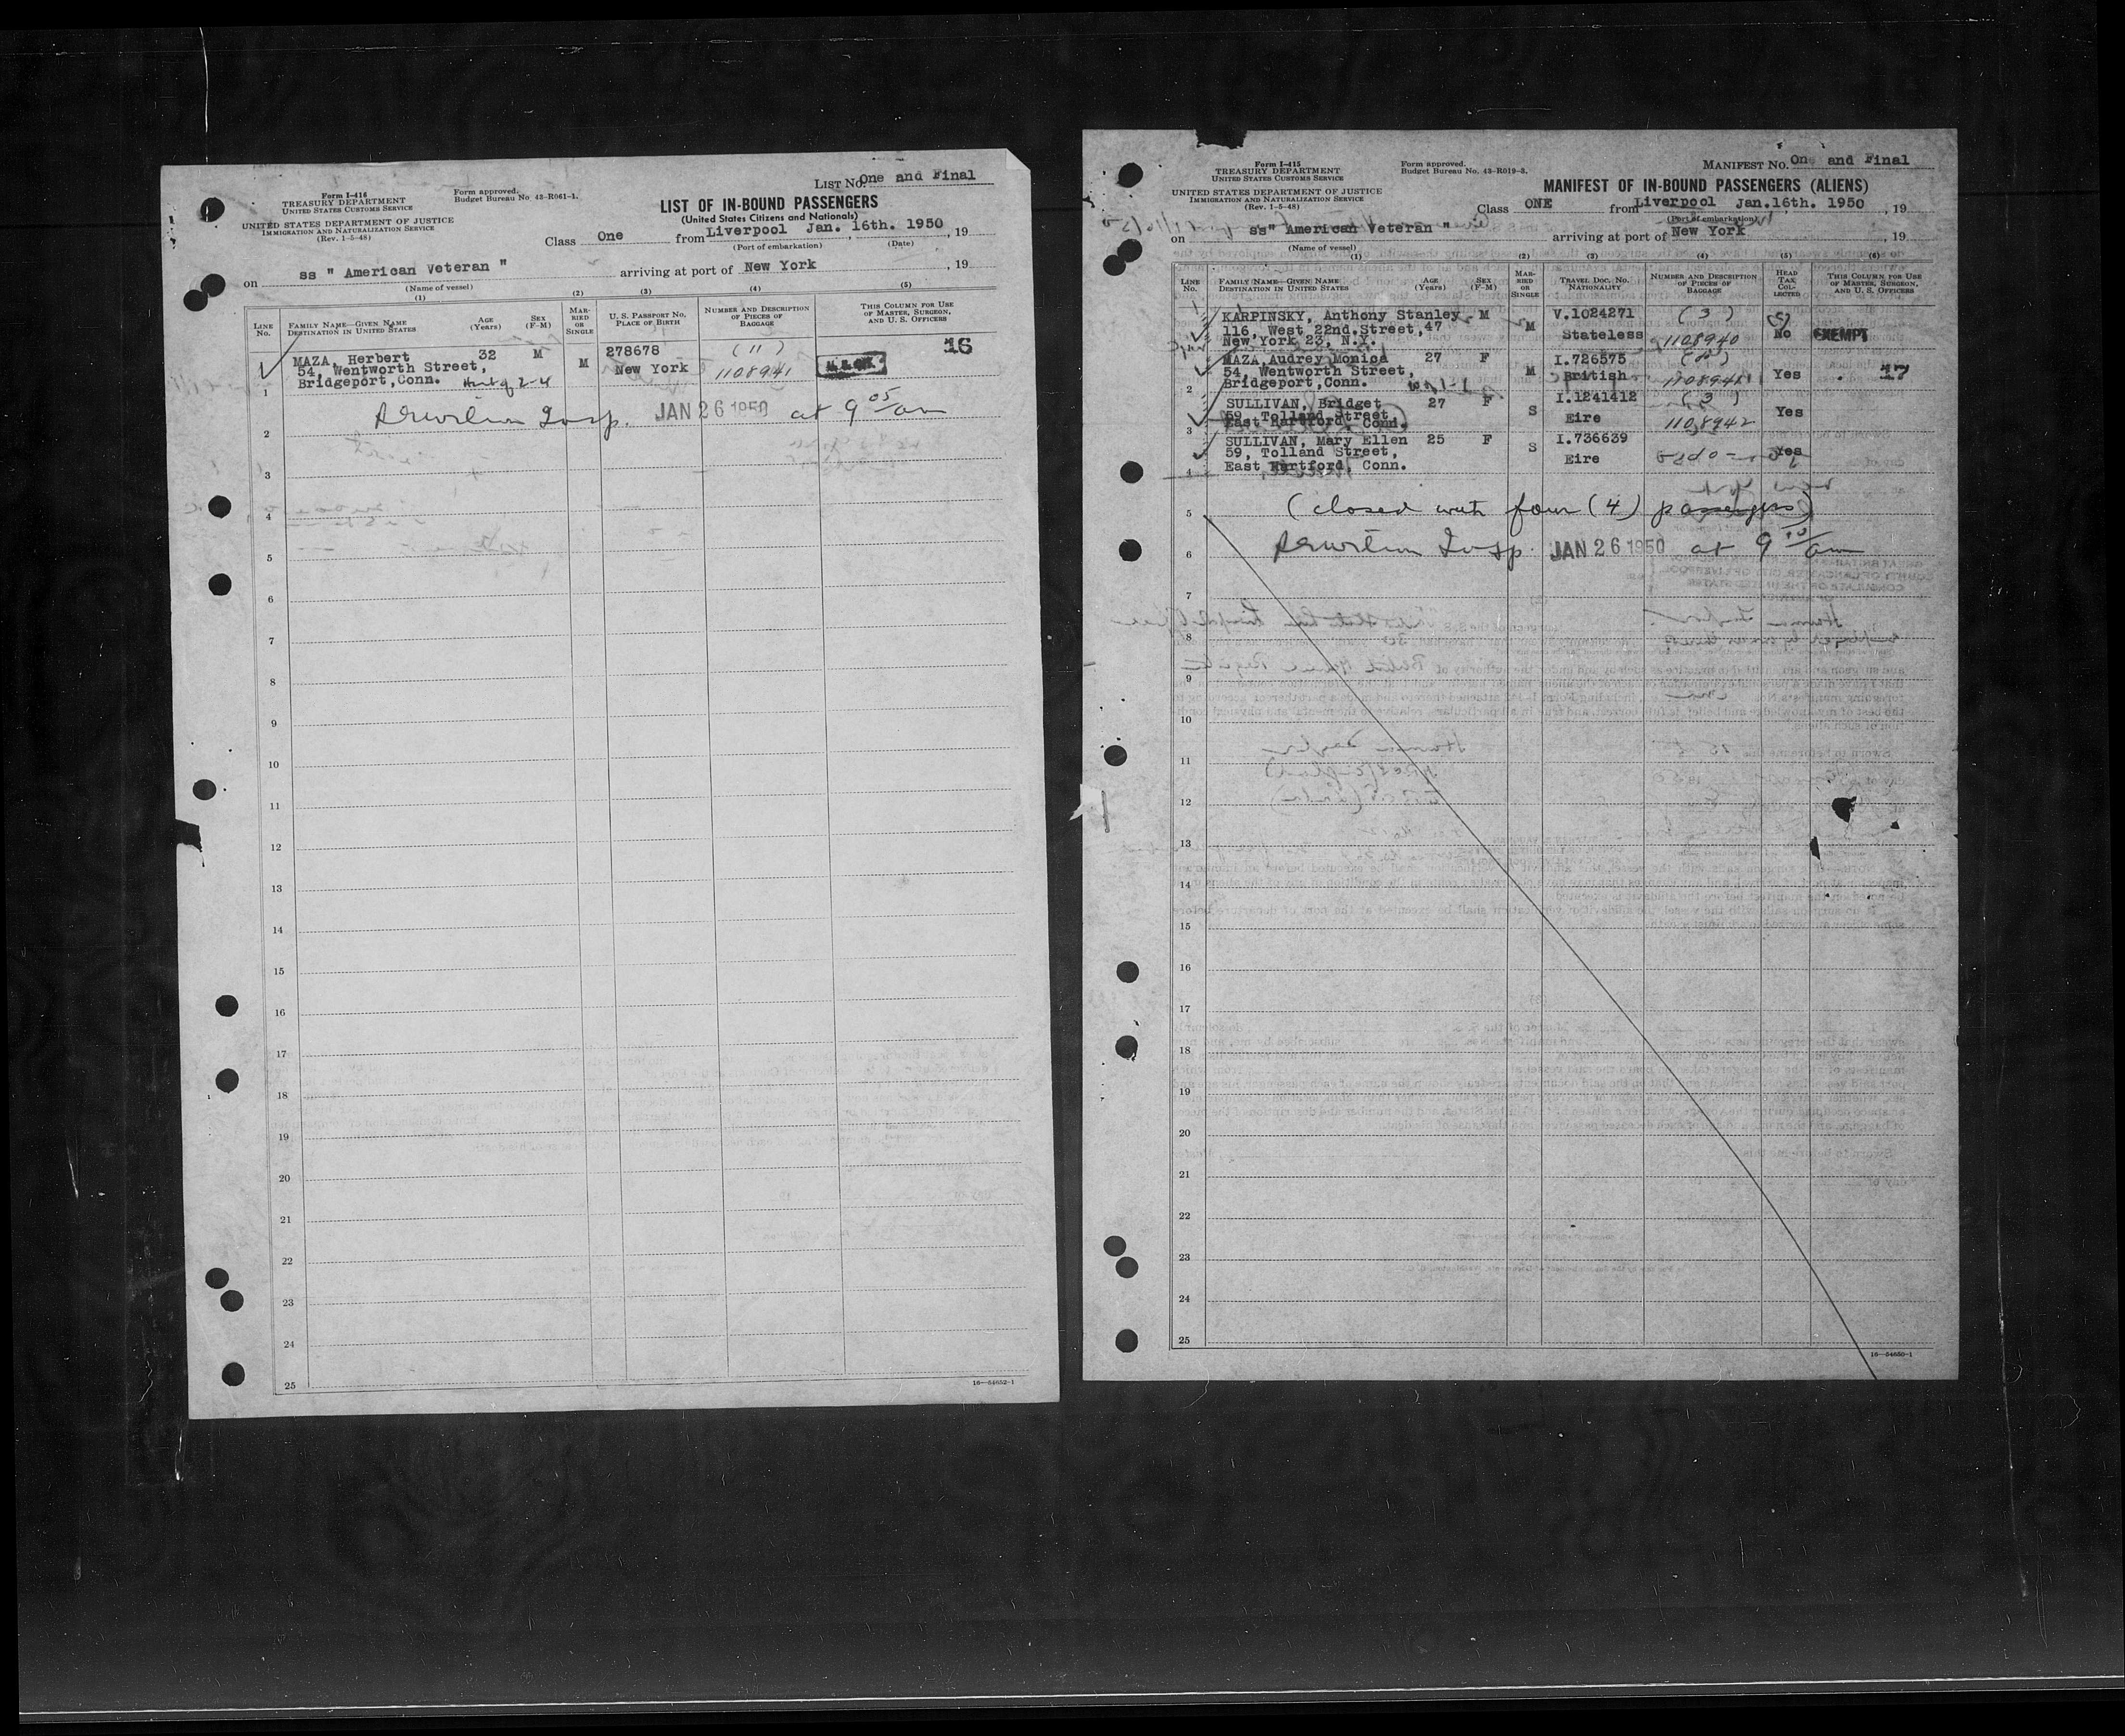 Form I-416
TREASURY DEPARTMENT
UNITED STATES CUSTOMS SERVICE
UNITED STATES DEPARTMENT OF JUSTICE
IMMIGRATION AND NATURALIZATION SERVICE
(Rev. 1-5-48)
Form approved.
Budget Bureau No 43-R061-1.
LIST No. One and Final
LIST OF IN-BOUND PASSENGERS
(United States Citizens and Nationals)
Class One from Liverpool Jan. 16th. 1950, 19
(Port of embarkation) (Date)
on ss " American Veteran " arriving at port of New York, 19
(Name of vessel)
(1) (2) (3) (4) (5)
LINE No.
FAMILY NAME—GIVEN NAME
DESTINATION IN UNITED STATES
AGE (Years)
SEX (F-M)
MARRIED OR SINGLE
U. S. PASSPORT No.
PLACE OF BIRTH
NUMBER AND DESCRIPTION OF PIECES OF BAGGAGE
THIS COLUMN FOR USE OF MASTER, SURGEON, AND U. S. OFFICERS
1 MAZA, Herbert 32 M M 278678 (11) 16
54, Wentworth Street, New York 1108941
Bridgeport, Conn.
Insp. JAN 26 1950 at 9 05 am
2
3
4
5
6
7
8
9
10
11
12
13
14
15
16
17
18
19
20
21
22
23
24
25
16—54652-1
Form I-415
TREASURY DEPARTMENT
UNITED STATES CUSTOMS SERVICE
UNITED STATES DEPARTMENT OF JUSTICE
IMMIGRATION AND NATURALIZATION SERVICE
(Rev. 1-5-48)
Form approved.
Budget Bureau No. 43-R019-3.
MANIFEST No. One and Final
MANIFEST OF IN-BOUND PASSENGERS (ALIENS)
Class ONE from Liverpool Jan.16th. 1950, 19
(Port of embarkation)
on ss" American Veteran " arriving at port of New York, 19
(Name of vessel)
(1) (2) (3) (4) (5) (6)
LINE No.
FAMILY NAME—GIVEN NAME
DESTINATION IN UNITED STATES
AGE (Years)
SEX (F-M)
MARRIED OR SINGLE
TRAVEL DOC. No.
NATIONALITY
NUMBER AND DESCRIPTION OF PIECES OF BAGGAGE
HEAD TAX COLLECTED
THIS COLUMN FOR USE OF MASTER, SURGEON, AND U. S. OFFICERS
1 KARPINSKY, Anthony Stanley M V.1024271 (3)
116, West 22nd.Street, 47 M Stateless 1108940 No EXEMPT
New York 23, N.Y.
2 MAZA, Audrey Monica 27 F I.726575
54, Wentworth Street, M British 1108941 Yes 17
Bridgeport, Conn.
3 SULLIVAN, Bridget 27 F I.1241412 (3)
59, Tolland Street, S Eire 1108942 Yes
East Hartford, Conn.
4 SULLIVAN, Mary Ellen 25 F I.736639
59, Tolland Street, S Eire Yes
East Hartford, Conn.
5 (closed with four (4) passengers)
6 Insp. JAN 26 1950 at 9 10 am
7
8
9
10
11
12
13
14
15
16
17
18
19
20
21
22
23
24
25
16—54650-1